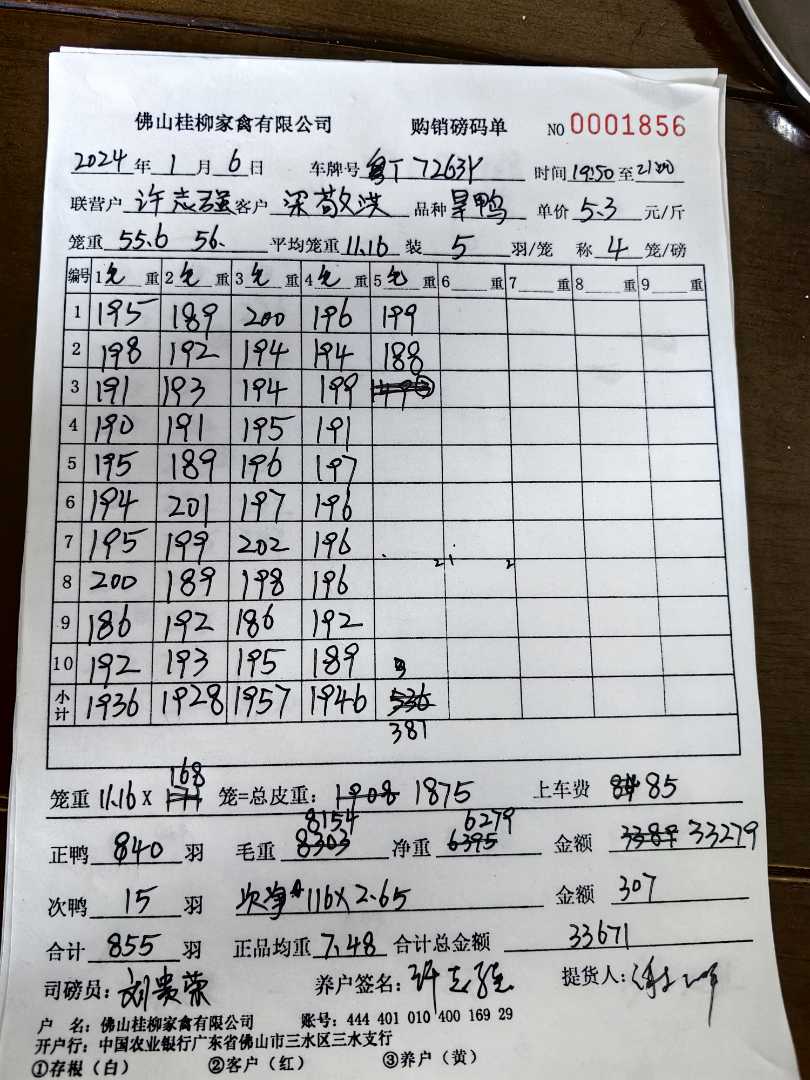 佛山桂柳家禽有限公司 购销磅码单 NO 0001856
2024年1月6日 车牌号 粤T7263Y 时间19:50至21:00
联营户 许志强 客户 梁敬洪 品种 旱鸭 单价 5.3 元/斤
笼重 55.6 56. 平均笼重 11.16 装 5 羽/笼 称 4 笼/磅
编号 1毛重 2毛重 3毛重 4毛重 5毛重 6重 7重 8重 9重
1 195 189 200 196 199
2 198 192 194 194 188
3 191 193 194 199
4 190 191 195 191
5 195 189 196 197
6 194 201 197 196
7 195 199 202 196
8 200 189 198 196
9 186 192 186 192
10 192 193 195 189
小计 1936 1928 1957 1946 536
381
168
笼重 11.16 X 171 笼=总皮重: 1908 1875 上车费 85
8154 6279
正鸭 840 羽 毛重 8303 净重 6395 金额 33279
次鸭 15 羽 次净 116X2.65 金额 307
合计 855 羽 正品均重 7.48 合计总金额 33671
司磅员: 刘贵荣 养户签名: 许志强 提货人:
户 名: 佛山桂柳家禽有限公司 账号: 444 401 010 400 169 29
开户行: 中国农业银行广东省佛山市三水区三水支行
①存根(白) ②客户(红) ③养户(黄)